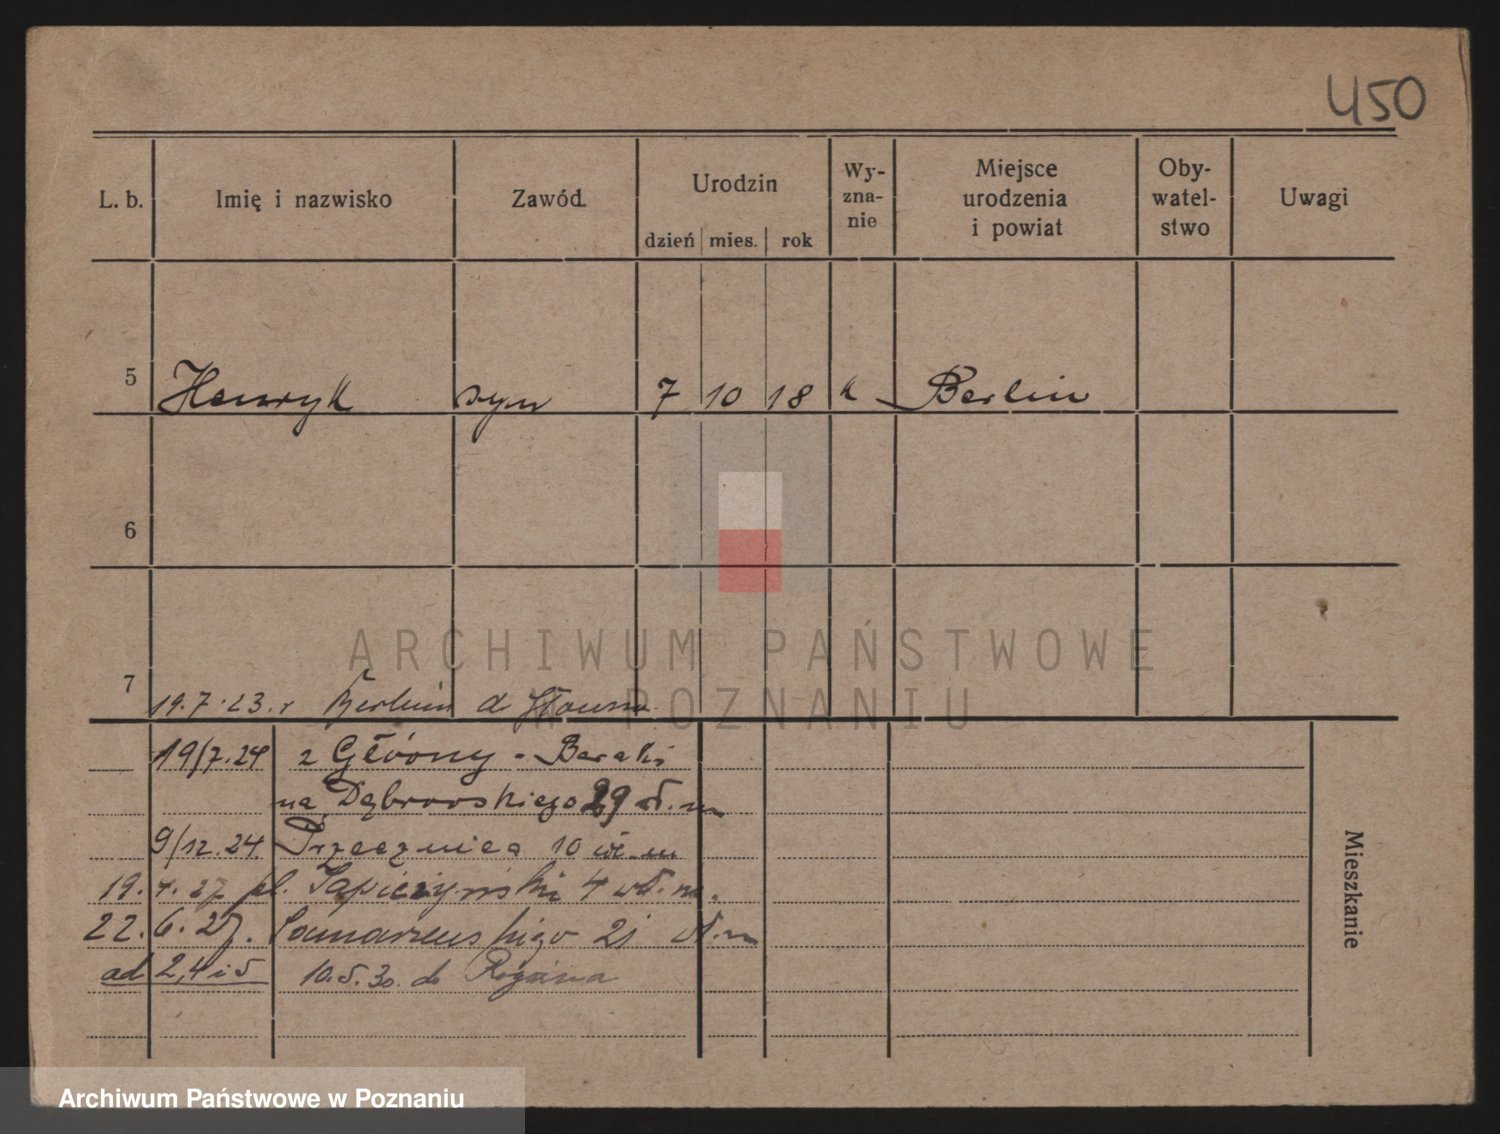 450
L. b. Imię i nazwisko Zawód. Urodzin Wy- zna- nie Miejsce urodzenia i powiat Oby- watel- stwo Uwagi
dzień mies. rok
5 Henryk syn 7 10 18 k Berlin
6
ARCHIWUM PAŃSTWOWE
W POZNANIU
7 19.7.23. r Berlin d
19/7.24 z Główny - Baraki
na Dąbrowskiego 29 m
9/12.24. Przecznica 10 m
19.4.27 pl. Sapieżyński 4 wł. m.
22.6.27. Samarzewskiego 21 m
ad 2,4 i 5 10.5.30. do
Mieszkanie
Archiwum Państwowe w Poznaniu